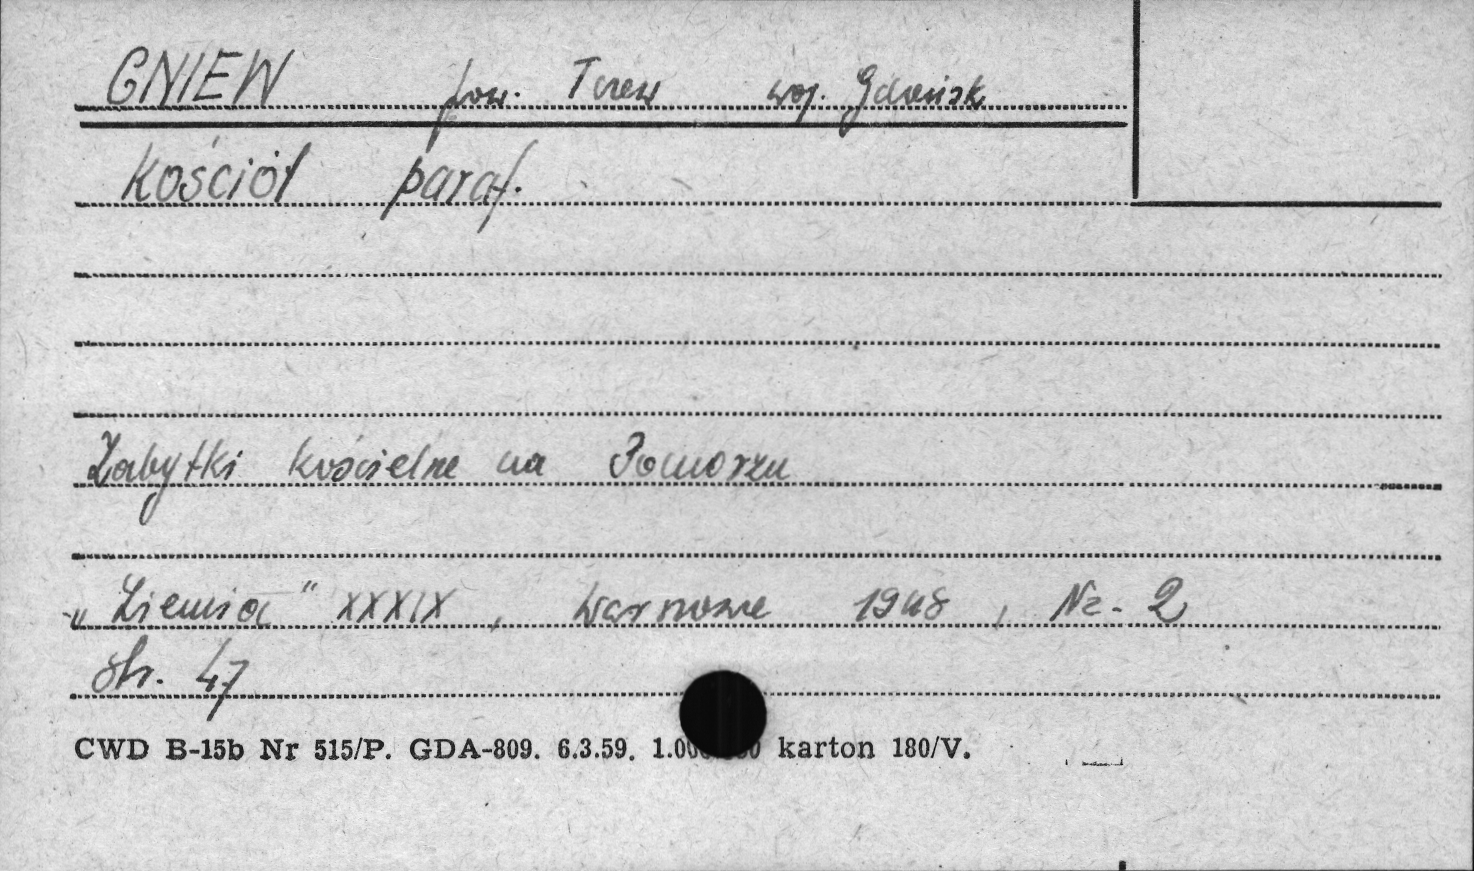 GNIEW pow. Tczew woj. Gdańsk
Kościół paraf.
Zabytki kościelne na Pomorzu
„Ziemia" XXXIX, Warszawa 1948, Nr. 2
str. 47
CWD B-15b Nr 515/P. GDA-809. 6.3.59. karton 180/V.